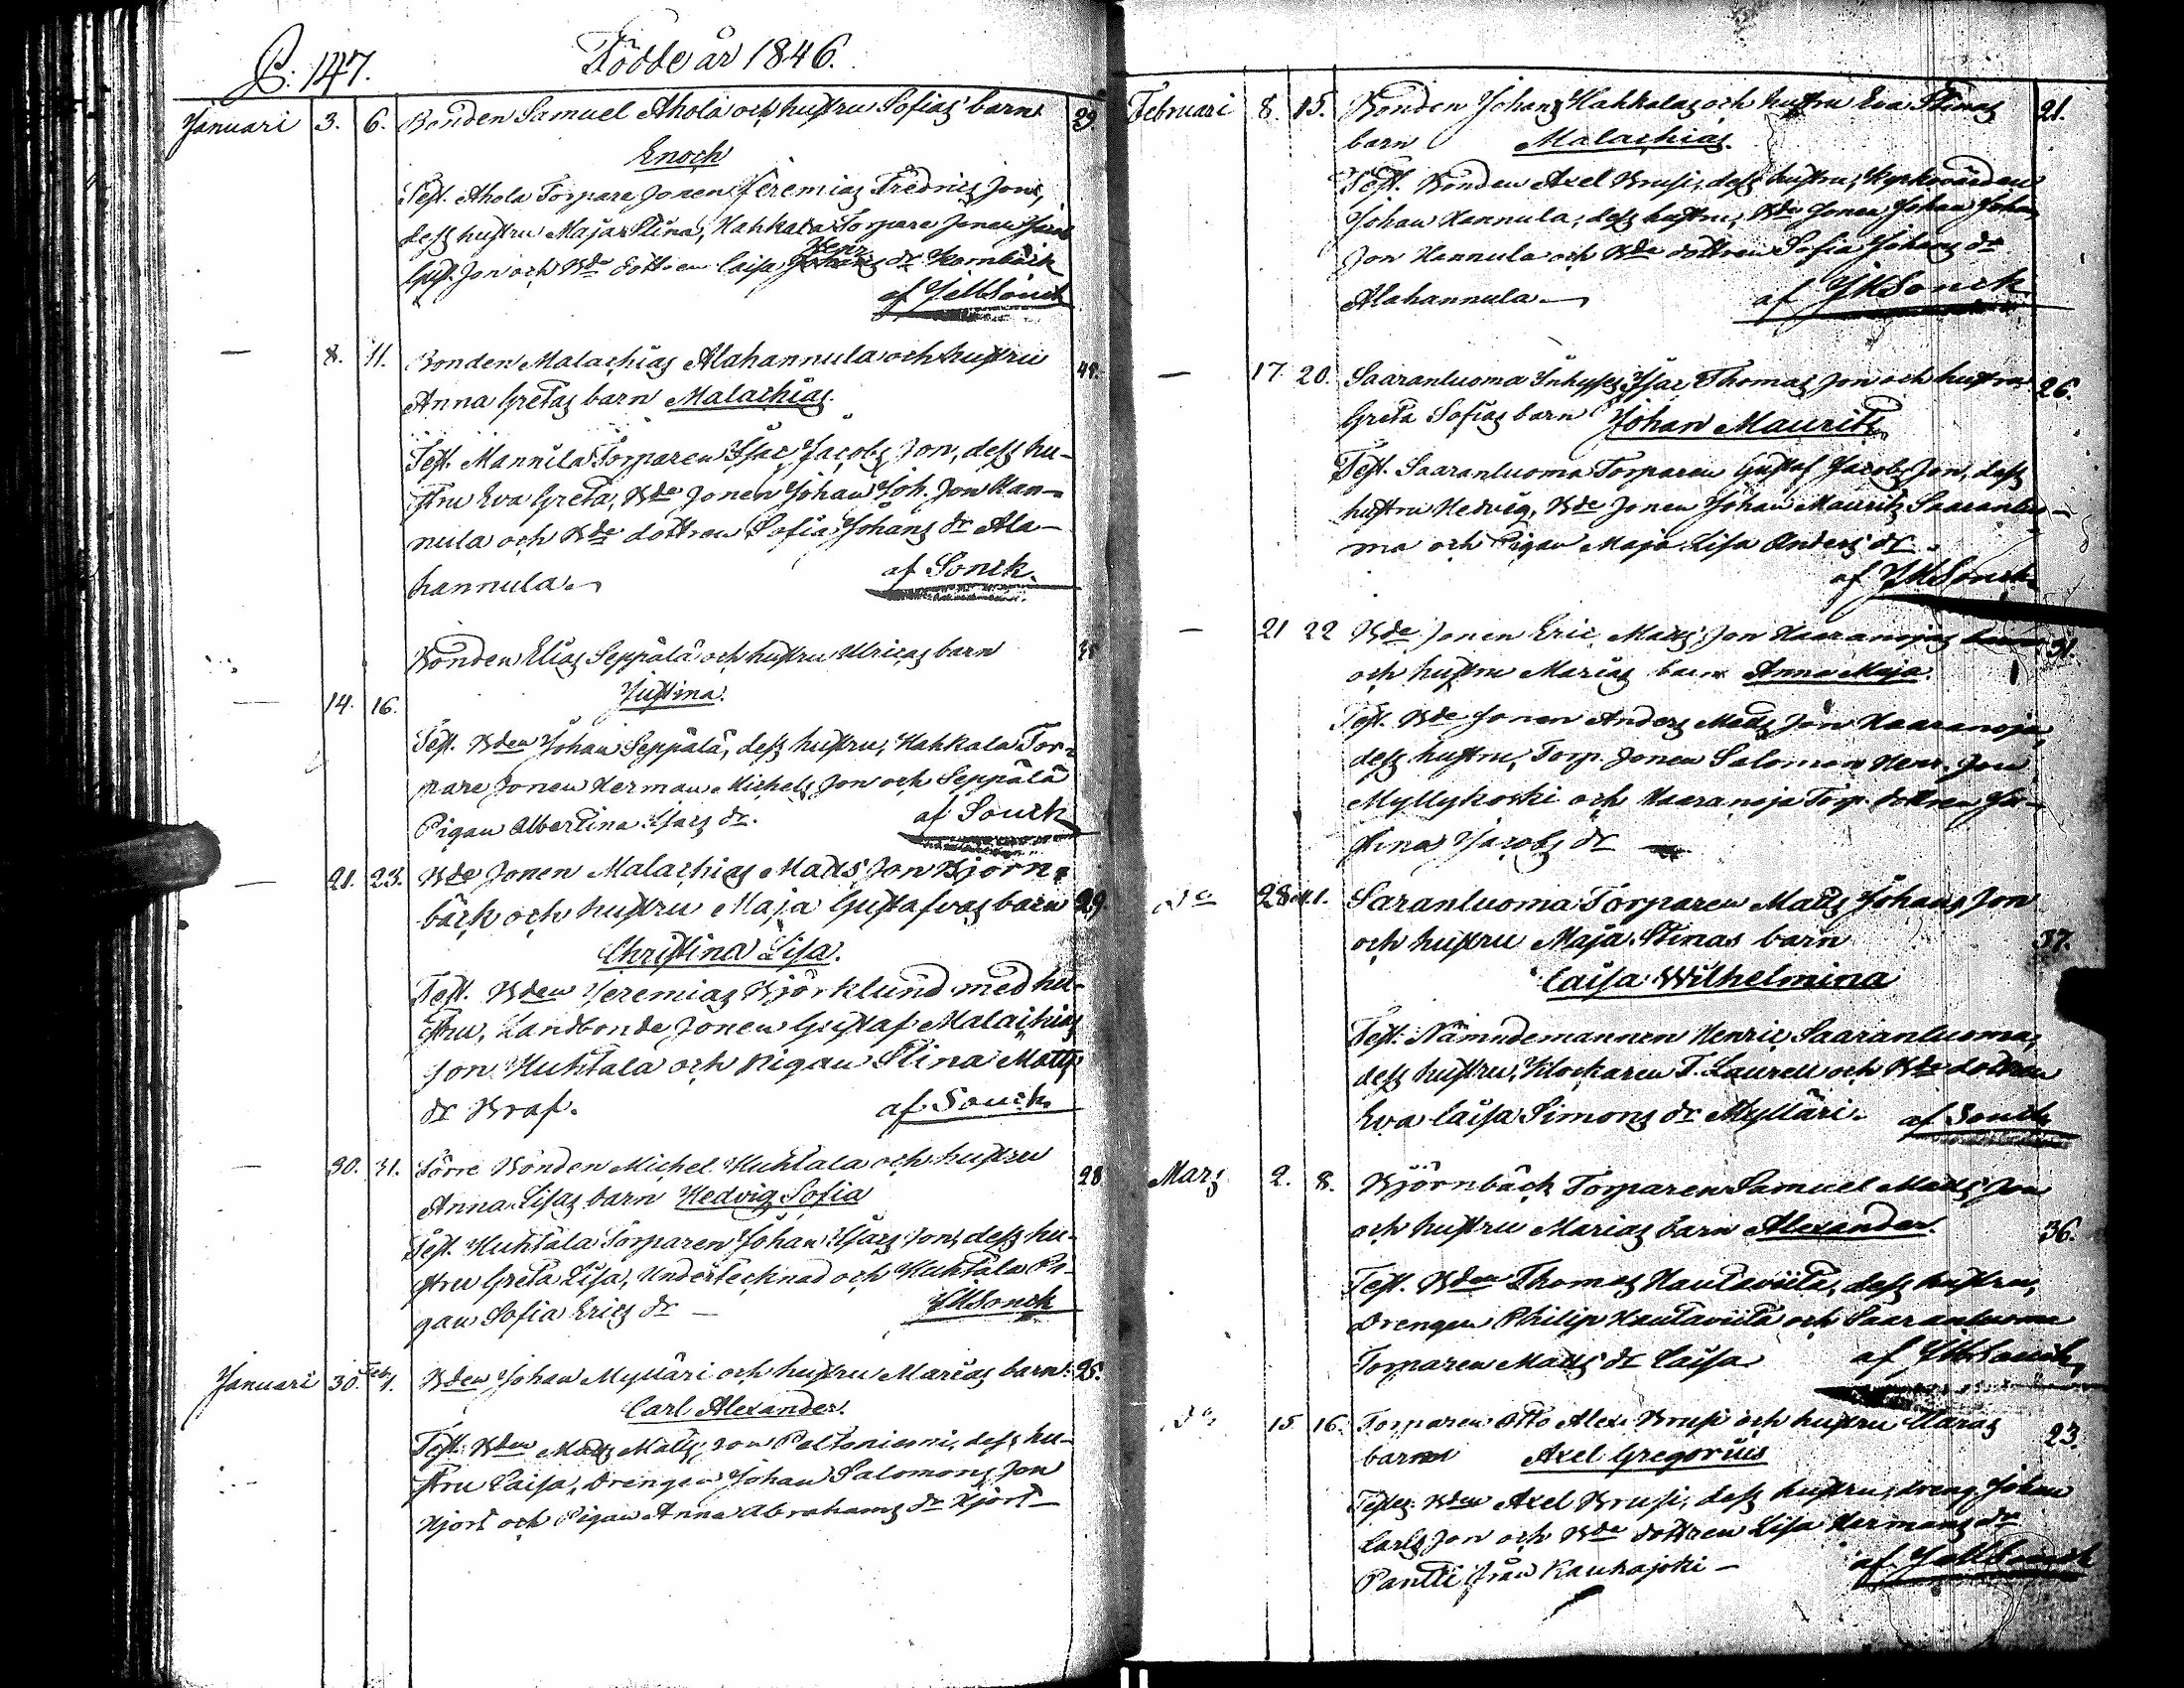 P. 147.
Födde år 1846.
Januari 3. 6. Bonden Samuel Ahola och hustru Sofias barn 29.
Enoch
Test. Ahola Torpare sonen Jeremias Fredrics son,
dess hustru Maja Stina, Hahkala Torpare sonen
Gust. son och Bde dottren Caisa Henr. dr Kornbäck
af JMSonck
— 8. 11. Bonden Malachias Alahannula och hustru
Anna Gretas barn Malachias.
Test. Mannila Torparen Isac Jacobs son, dess hu-
stru Eva Greta, Bde sonen Johan Joh. son Han-
nula och Bde dottren Sofia Johans dr Ala-
hannula. af Sonck.
Bonden Elias Seppälä och hustru Ulricas barn
— 14. 16. Justina.
Test. Bden Johan Seppälä, dess hustru, Hahkala Tor-
pare sonen Herman Michels son och Seppälä
Pigan Albertina Isacs dr. af Sonck
— 21. 23. Bde sonen Malachias Matts son Björn-
bäck och hustru Maja Gustafvas barn 29
Christina Lisa.
Test. Bden Jeremias Björklund med hu-
stru, Landbonde sonen Gustaf Malachias
son Huhtala och pigan Stina Matts
dr Braf. af Sonck.
— 30. 31. Förre Bonden Michel Huhtala och hustru 28
Anna Lisas barn Hedvig Sofia
Test. Huhtala Torparen Johan Isacs son, dess hu-
stru Greta Lisa, Undertecknad och Huhtala Pi-
gan Sofia Erics dr — JMSonck
Januari 30. Feb. 1. Bden Johan Mylläri och hustru Marias barn 25.
Carl Alexander.
Test. Bden Matts Matts son Peltoniemi, dess hu-
stru Caisa, Drengen Johan Salomons son
Hjort och Pigan Anna Abrahams dr Hjort —
Februari 8. 15. Bonden Johans Hahkalas och hustru Eva Stinas 21.
barn Malachias.
Test. Bonden Axel Brusi, dess hustru, Kyrkovärden
Johan Hannula, dess hustru, Bde sonen Johan Johan
son Hannula och Bde dottren Sofia Johans dr
Alahannula — af JMSonck
— 17. 20. Saaranluoma Inhyses Isac Thomas son och hustru 26.
Greta Sofias barn Johan Maurits
Test. Saaranluoma Torparen Gustaf Jacobs son, dess
hustru Hedvig, Bde sonen Johan Maurits Saaranluo-
ma och Pigan Maja Lisa Anders dr.
af JMSonck.
— 21 22 Bde sonen Eric Matts son Haaranojas 31.
och hustru Marias barn Anna Maja.
Test. Bde sonen Anders Matts son Haaranoja,
dess hustru, Torp. sonen Salomon Henr. son
Myllykoski och Haaranoja Torp. dottren Ju-
stina Jacobs dr —
Do 28 M 1. Saranluoma Torparen Matts Johans son
och hustru Maja Stinas barn 37.
Caisa Wilhelmina
Test. Nämndemannen Henric Saaranluoma,
dess hustru, Klockaren T. Laurell och Bde dottren
Eva Caisa Simons dr Mylläri. af Sonck
Mars 2. 8. Björnbäck Torparen Samuel Matts son
och hustru Marias barn Alexander. 36.
Test. Bden Thomas Hautaviita, dess hustru,
Drengen Philip Hautaviita och Saaranluoma
Torparen Matts dr Caisa af JMSonck,
Do 15 16. Torparen Otto Alex. Brusi och hustru Claras 23.
barn Axel Gregorius
Testes Bden Axel Brusi, dess hustru, dreng. Johan
Carls son och Bde dottren Lisa Hermans dr
Pantti från Kauhajoki — af JMSonck